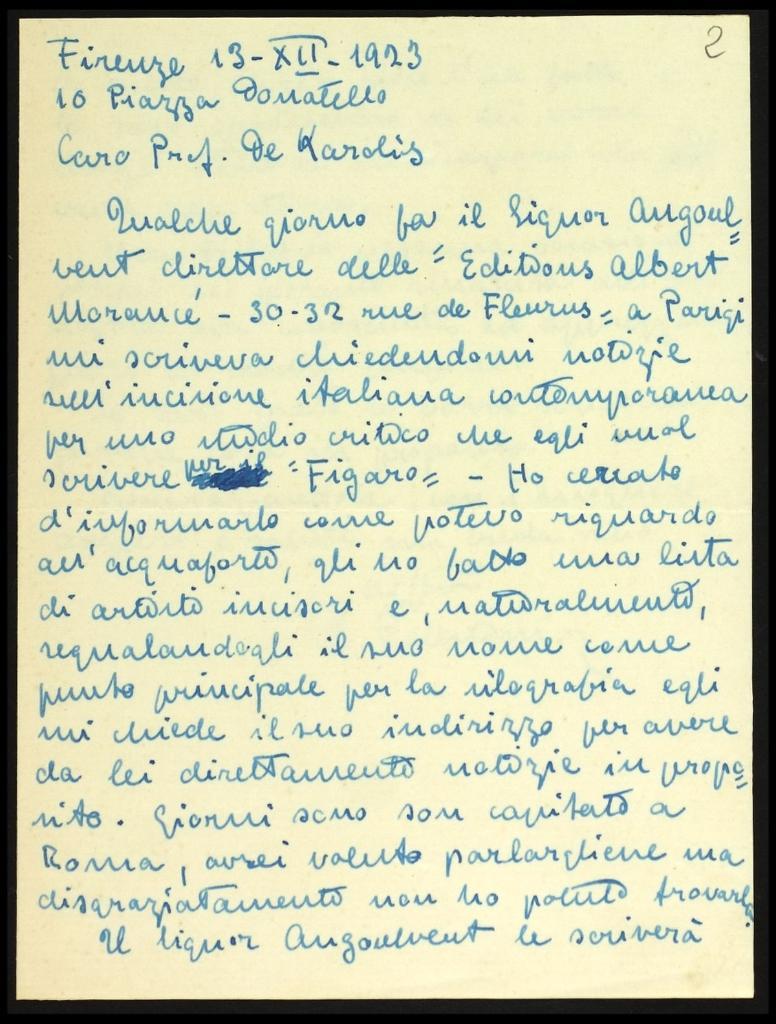 2
Firenze 13-XII-1923
10 Piazza Donatello
Caro Prof. De Karolis
Qualche giorno fa il Signor Angoul=
vent direttore delle "Editions Albert
Morancé - 30-32 rue de Fleurus" a Parigi
mi scriveva chiedendomi notizie
sull'incisione italiana contemporanea
per uno studio critico che egli vuol
scrivere per il "Figaro" - Ho cercato
d'informarlo come potevo riguardo
all'acquaforte, gli ho fatto una lista
di artisti incisori e, naturalmente,
segnalandogli il suo nome come
punto principale per la silografia egli
mi chiede il suo indirizzo per avere
da lei direttamente notizie in propo=
sito. Giorni sono son capitato a
Roma, avrei voluto parlargliene ma
disgraziatamente non ho potuto trovarla.
Il signor Angoulvent le scriverà